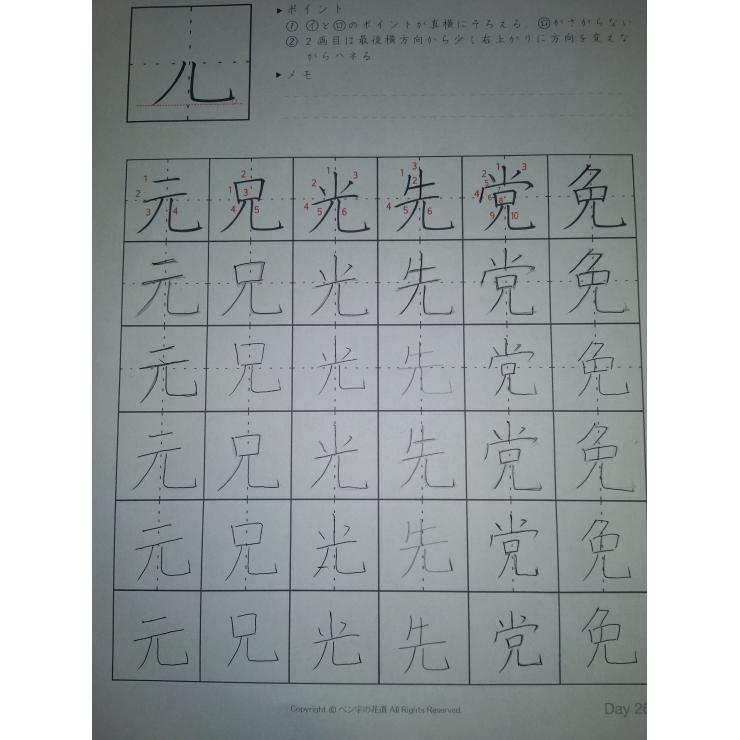 ▶ポイント
① ㋑と㋺のポイントが真横にそろえる。㋺がさがらない
② 2画目は最後横方向から少し右上がりに方向を変えな
がらハネる
▶メモ
儿
元 兄 光 先 党 免
元 兄 光 先 党 免
元 兄 光 先 党 免
元 兄 光 先 党 免
元 兄 光 先 党 免
元 兄 光 先 党 免
Copyright © ペン字の花道 All Rights Reserved.
Day 26